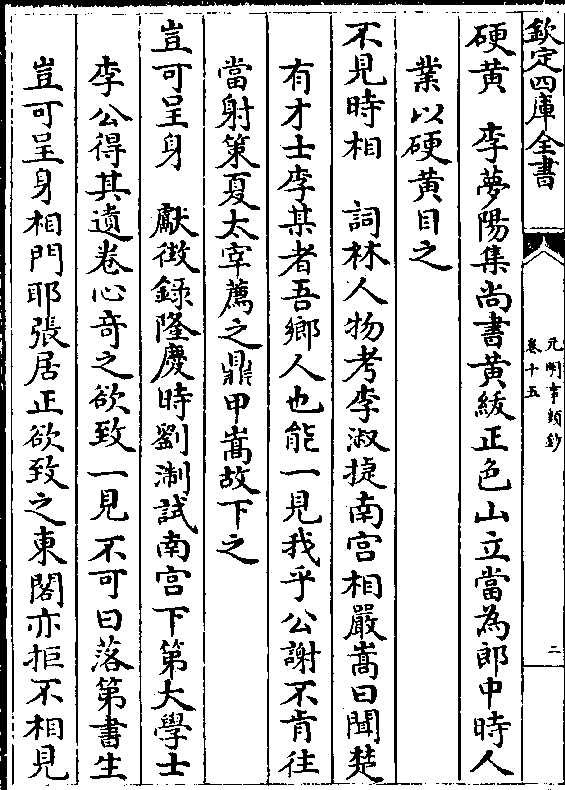 欽定四庫全書
元明事類鈔
卷十五
二
硬黄　李夢陽集尚書黄紱正色山立當為郎中時人
業以硬黄目之
不見時相　詞林人物考李淑捷南宫相嚴嵩曰聞楚
有才士李某者吾鄉人也能一見我乎公謝不肯往
當射策夏太宰薦之鼎甲嵩故下之
豈可呈身　獻徴録隆慶時劉淛試南宫下第大學士
李公得其遺卷心竒之欲致一見不可曰落第書生
豈可呈身相門耶張居正欲致之東閣亦拒不相見